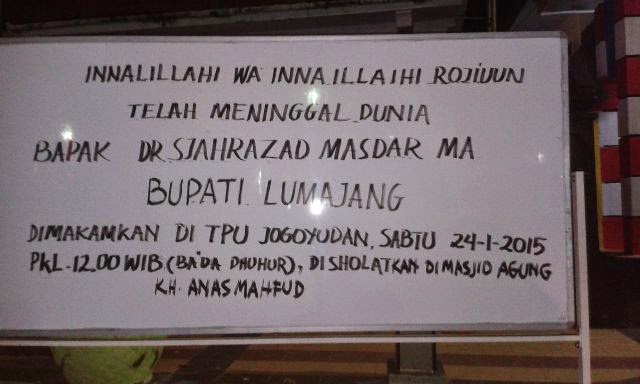 INNALILLAHI WA INNA ILLAIHI ROJIUUN
TELAH MENINGGAL DUNIA
BAPAK DR SJAHRAZAD MASDAR MA
BUPATI LUMAJANG
DIMAKAMKAN DI TPU JOGOYUDAN, SABTU 24-1-2015
PKL.12.00 WIB (BA'DA DHUHUR), DI SHOLATKAN DI MASJID AGUNG
KH. ANAS MAHFUD